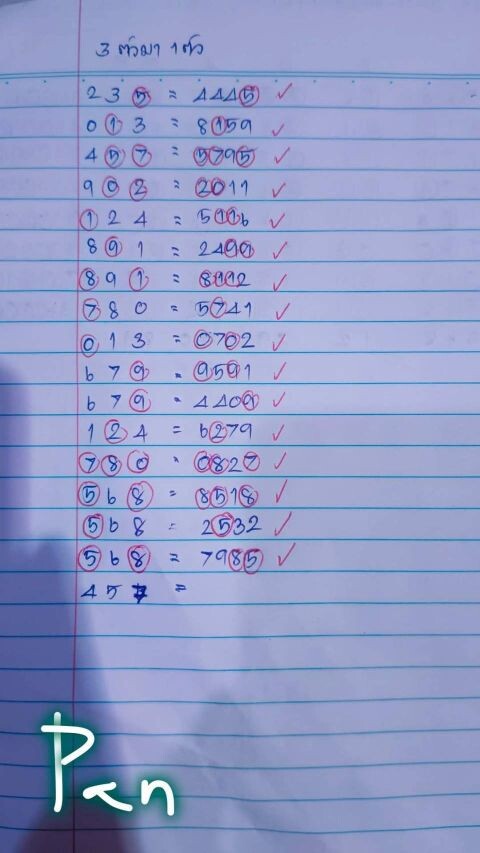 3 ตัวมา 1 ตัว
2 3 5 = 4445
0 1 3 = 8159
4 5 7 = 5795
9 0 2 = 2011
1 2 4 = 5116
8 9 1 = 2499
8 9 1 = 8112
7 8 0 = 5741
0 1 3 = 0702
6 7 9 = 9591
6 7 9 = 4409
1 2 4 = 6279
7 8 0 = 0827
5 6 8 = 8518
5 6 8 = 2532
5 6 8 = 7985
4 5 7 =
Pan